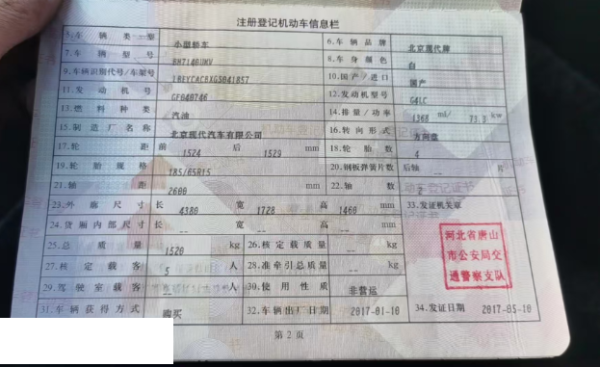 注册登记机动车信息栏
5.车辆类型 小型轿车 6.车辆品牌 北京现代牌
7.车辆型号 BH7140UMV 8.车身颜色 白
9.车辆识别代号/车架号 10.国产/进口 国产
11.发动机号 12.发动机型号 G4LC
13.燃料种类 汽油 14.排量/功率 1368 ml/ kw
15.制造厂名称 北京现代汽车有限公司 16.转向形式 方向盘
17.轮距 前 1524 后 1529 mm 18.轮胎数 4
19.轮胎规格 185/65R15 20.钢板弹簧片数 后轴 --
21.轴距 2600 mm 22.轴数 2
23.外廓尺寸 长 4380 宽 1728 高 1460 mm 33.发证机关章
24.货厢内部尺寸 长 -- 宽 -- 高 -- mm
25.总质量 1520 kg 26.核定载质量 -- kg
27.核定载客 5 人 28.准牵引总质量 -- kg
29.驾驶室载客 -- 人 30.使用性质 非营运
31.车辆获得方式 购买 32.车辆出厂日期 2017-01-10 34.发证日期 2017-05-10
河北省唐山
市公安局交
通警察支队
第2页